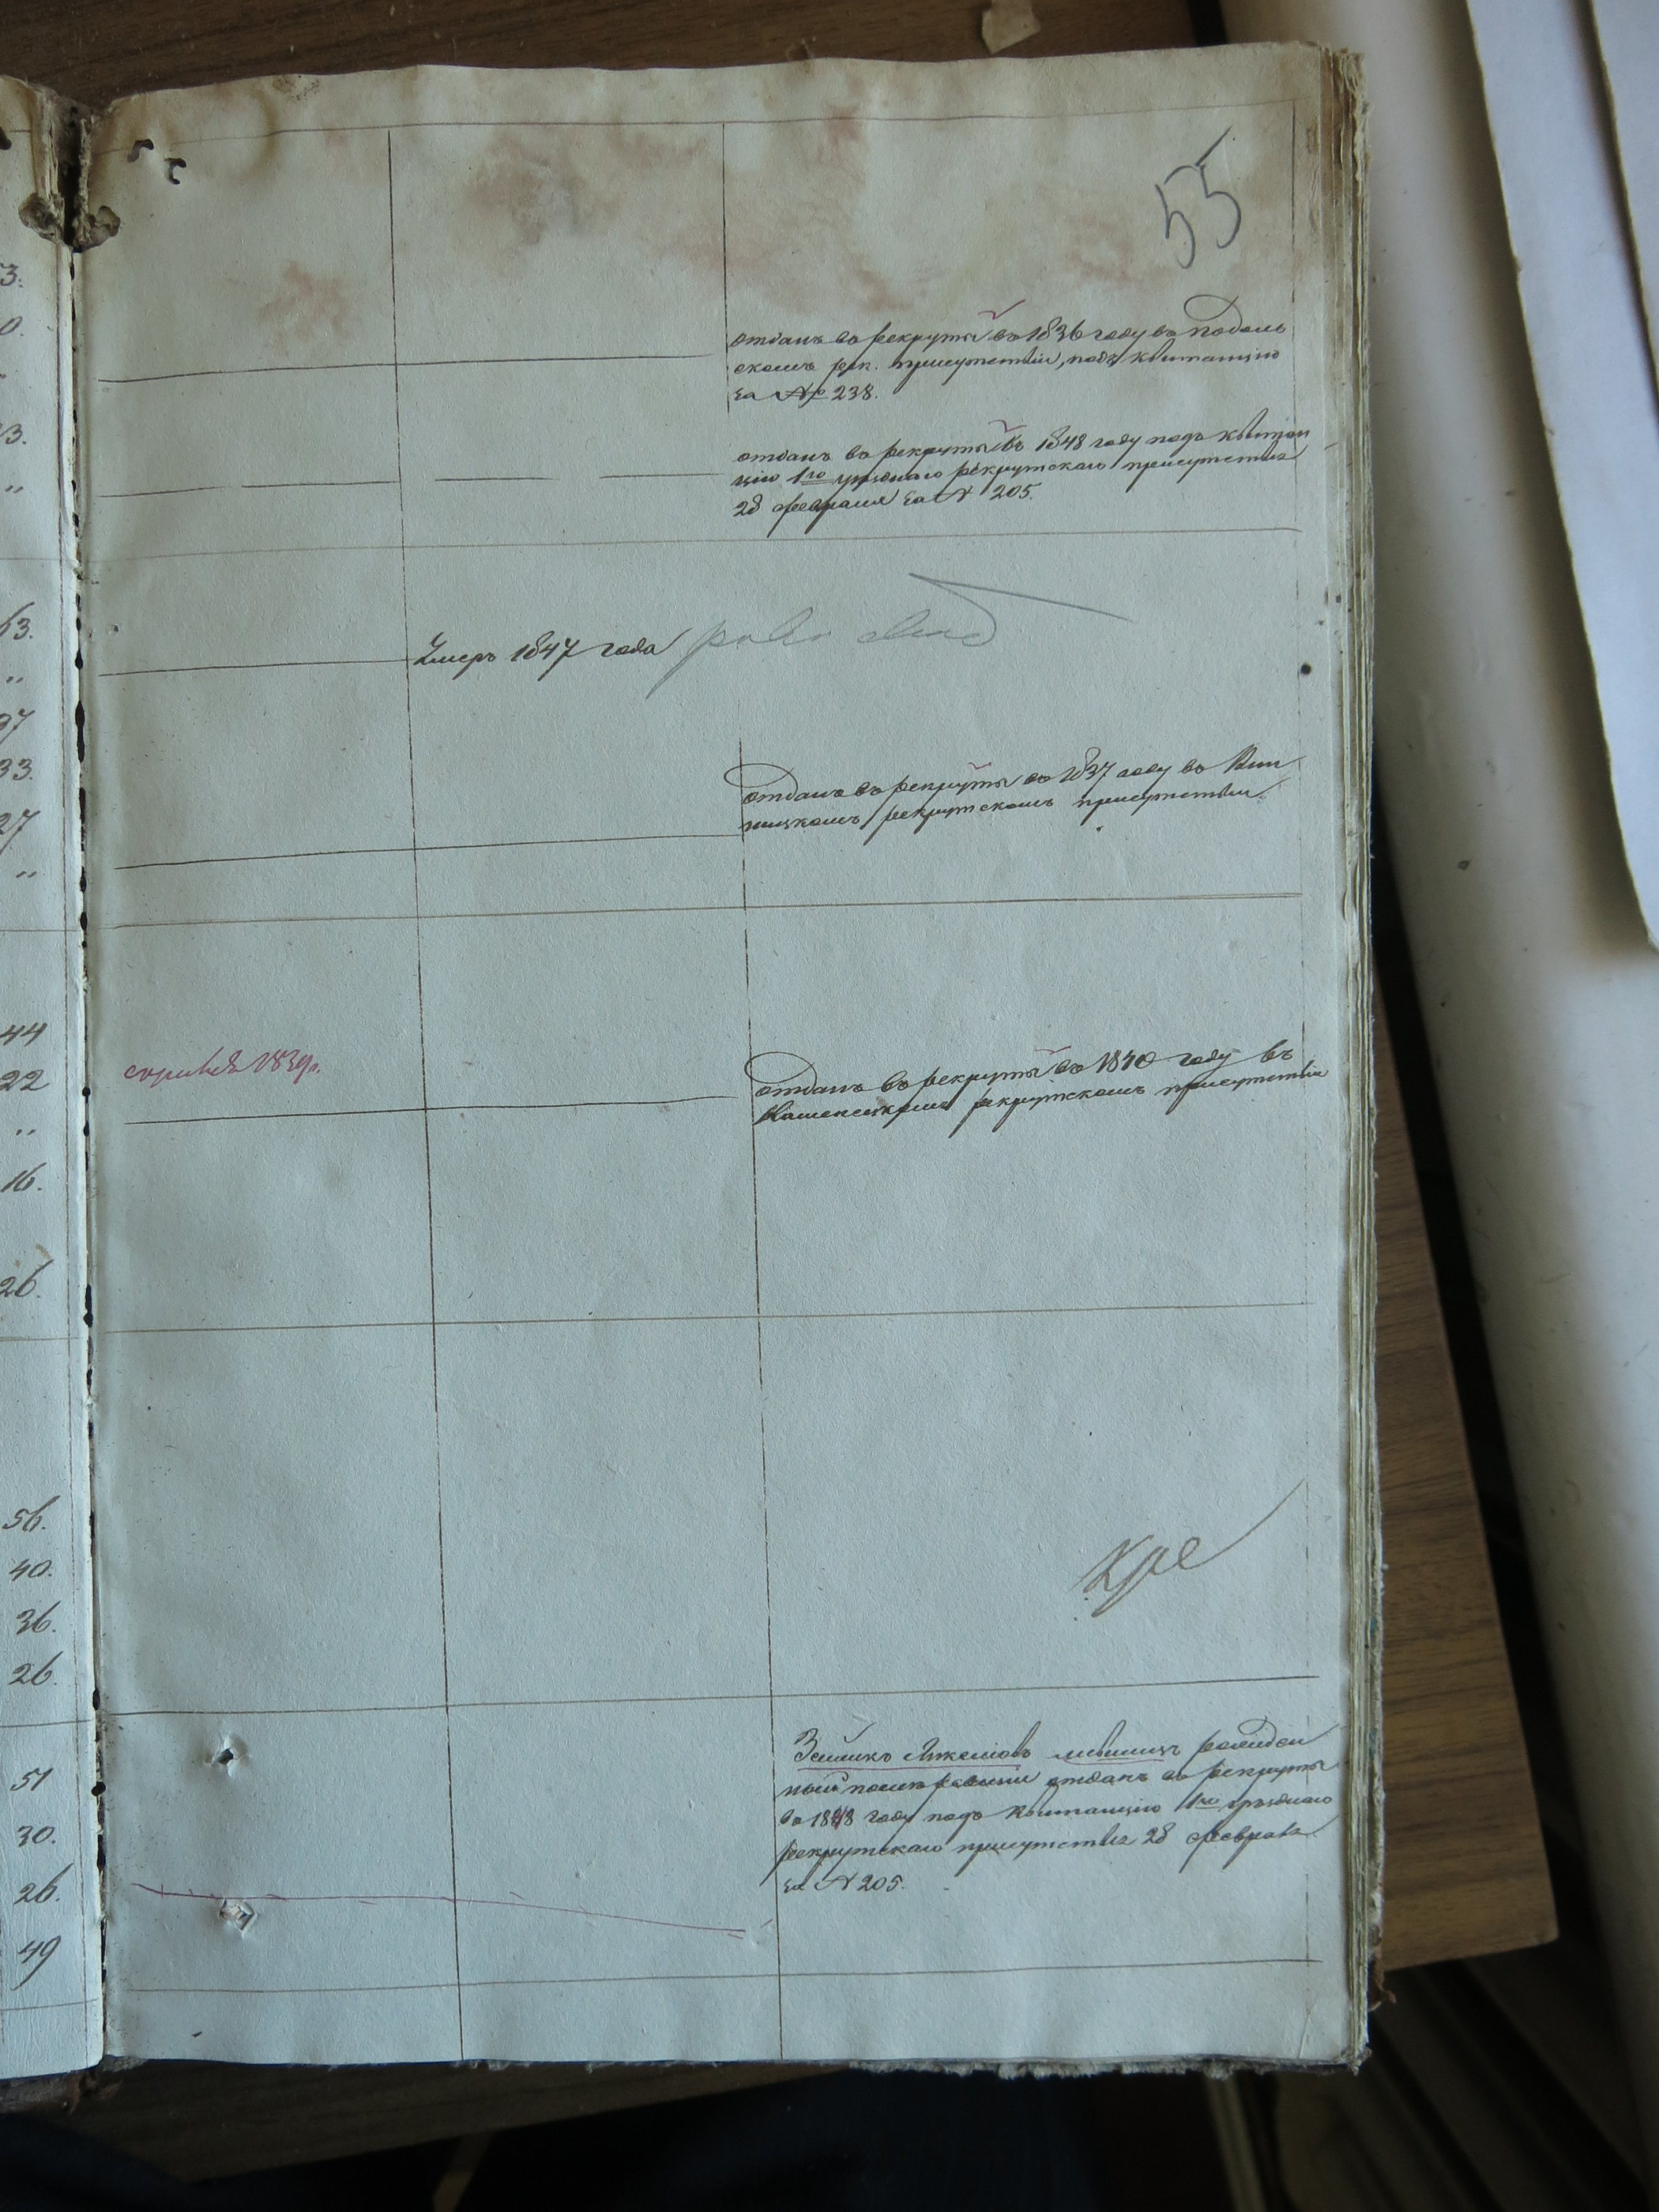 55
3.
0.
3.
"
отданъ въ рекруты въ 1836 году въ Подоль
скомъ рек. присутствіи, подъ квитанцію
за № 238.
отданъ въ рекруты въ 1848 году подъ квитан
цію 1го уѣзднаго рекрутскаго присутствія
28 февраля за № 205.
63.
"
37
33.
27
"
Умеръ 1847 года
отданъ въ рекруты въ 1837 году въ Вин
ницкомъ рекрутскомъ присутствіи
44
22
"
16.
26.
1839
отданъ въ рекруты въ 1840 году въ
Каменецкомъ рекрутскомъ присутствіи
56.
40.
36.
26.
Кре
51
30.
26.
49
отданъ въ рекруты
въ 1848 году подъ квитанцію 1го уѣзднаго
рекрутскаго присутствія 28 февраля
за № 205.